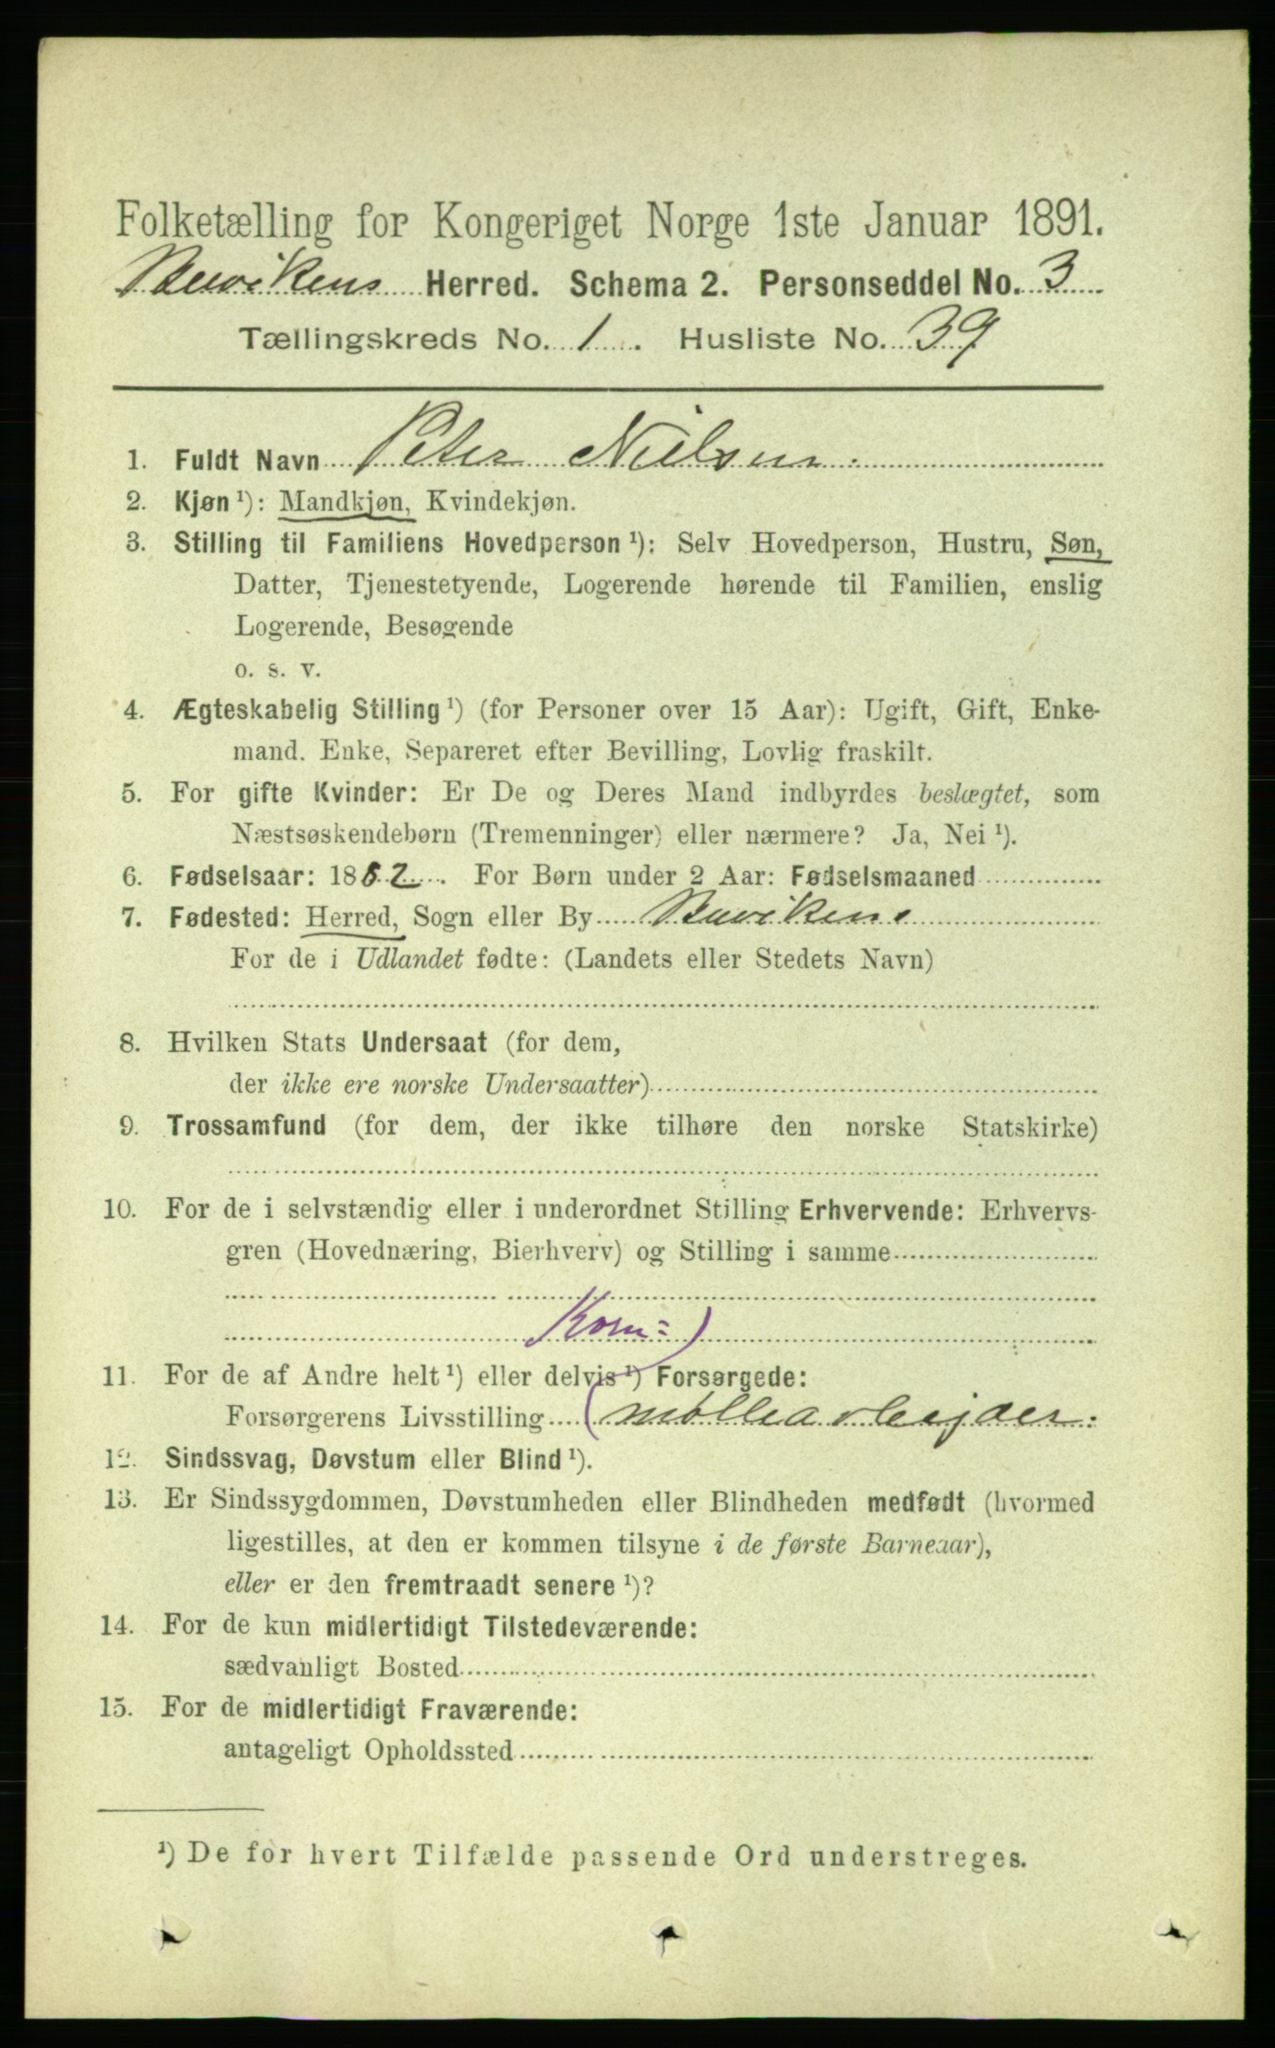 Folketælling for Kongeriget Norge 1ste Januar 1891.
Buvikens Herred. Schema 2. Personseddel No. 3
Tællingskreds No. 1. Husliste No. 39
1. Fuldt Navn Peter Nielsen.
2. Kjøn ¹): Mandkjøn, Kvindekjøn.
3. Stilling til Familiens Hovedperson ¹): Selv Hovedperson, Hustru, Søn,
Datter, Tjenestetyende, Logerende hørende til Familien, enslig
Logerende, Besøgende
o. s. v.
4. Ægteskabelig Stilling ¹) (for Personer over 15 Aar): Ugift, Gift, Enke-
mand. Enke, Separeret efter Bevilling, Lovlig fraskilt.
5. For gifte Kvinder: Er De og Deres Mand indbyrdes beslægtet, som
Næstsøskendebørn (Tremenninger) eller nærmere? Ja, Nei ¹).
6. Fødselsaar: 1882. For Børn under 2 Aar: Fødselsmaaned
7. Fødested: Herred, Sogn eller By Buvikens
For de i Udlandet fødte: (Landets eller Stedets Navn)
8. Hvilken Stats Undersaat (for dem,
der ikke ere norske Undersaatter)
9. Trossamfund (for dem, der ikke tilhøre den norske Statskirke)
10. For de i selvstændig eller i underordnet Stilling Erhvervende: Erhvervs-
gren (Hovednæring, Bierhverv) og Stilling i samme
Korn=)
11. For de af Andre helt ¹) eller delvis ¹) Forsørgede:
Forsørgerens Livsstilling (møllearbejder.
12. Sindssvag, Døvstum eller Blind ¹).
13. Er Sindssygdommen, Døvstumheden eller Blindheden medfødt (hvormed
ligestilles, at den er kommen tilsyne i de første Barneaar),
eller er den fremtraadt senere ¹)?
14. For de kun midlertidigt Tilstedeværende:
sædvanligt Bosted
15. For de midlertidigt Fraværende:
antageligt Opholdssted
¹) De for hvert Tilfælde passende Ord understreges.